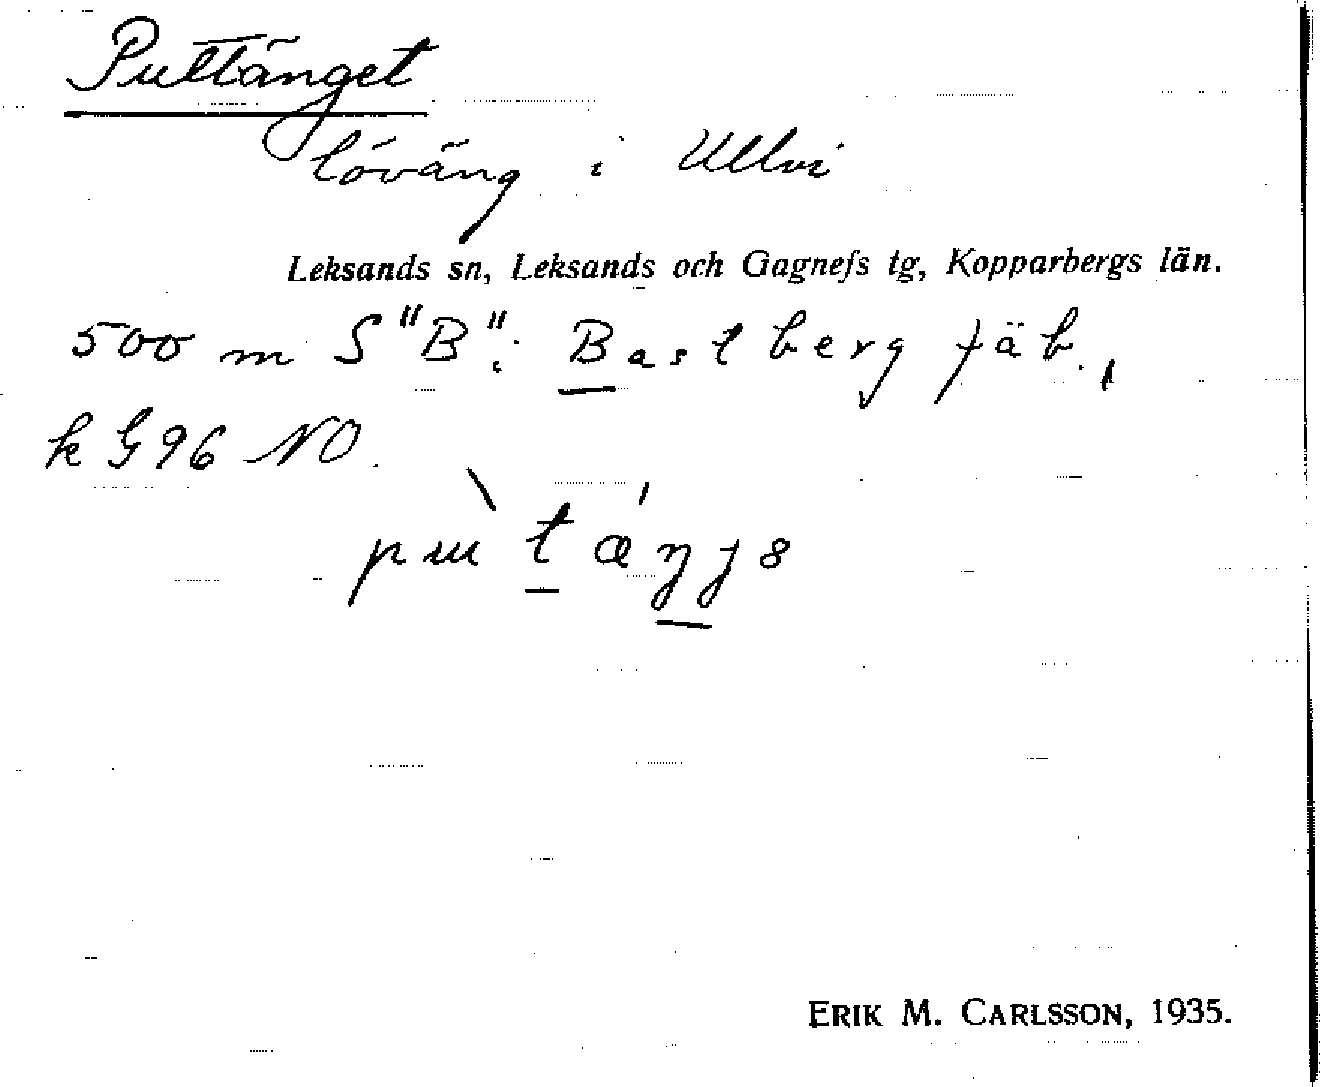 Puttänget
löväng i Ullvi
Leksands sn, Leksands och Gagnefs tg, Kopparbergs län.
500 m S "B": Bastberg fäb.,
k G96 NO.
ERIK M. CARLSSON, 1935.